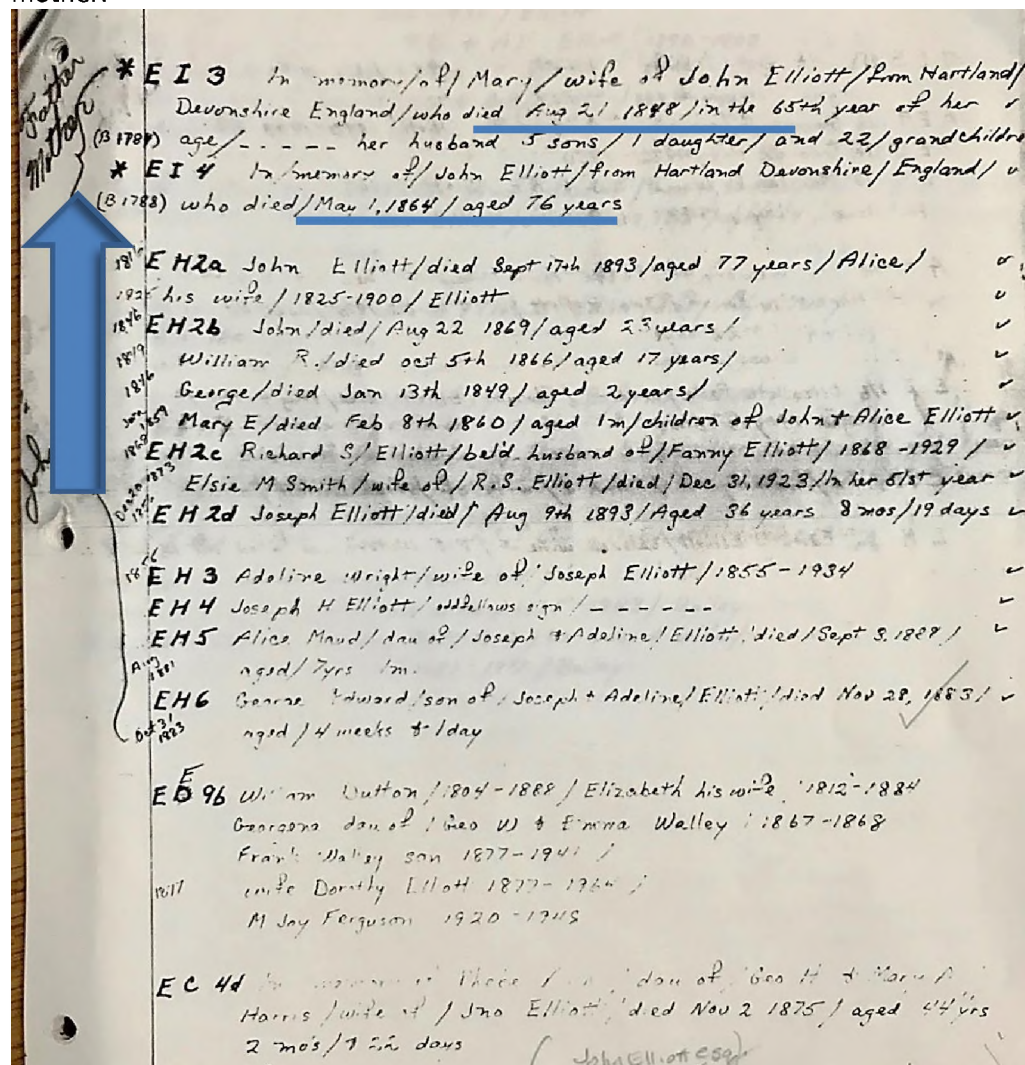 mother.
Father
Mother
* E I 3 In memory/of/ Mary/wife of John Elliott/from Hartland/
Devonshire England/who died Aug 21 1848/in the 65th year of her
(B 1784) age/_ _ _ _ _ her husband 5 sons/1 daughter/and 22/grandchildre
* E I 4 In/memory of/John Elliott/from Hartland Devonshire/England/
(B 1788) who died/May 1, 1864/aged 76 years
1816 E H2a John Elliott/died Sept 17th 1893/aged 77 years/Alice/
1825 his wife/1825-1900/Elliott
1846 E H2b John/died/Aug 22 1869/aged 23 years/
1849 William R./died oct 5th 1866/aged 17 years/
1846 George/died Jan 13th 1849/aged 2 years/
Jan 1859 Mary E/died Feb 8th 1860/aged 1m/children of John + Alice Elliott
1868 E H2c Richard S/Elliott/bel'd husband of/Fanny Elliott/1868-1929/
Elsie M Smith/wife of/R.S. Elliott/died/Dec 31, 1923/In her 51st year
E H 2d Joseph Elliott/died/Aug 9th 1893/Aged 36 years 8 mos/19 days
E H 3 Adeline Wright/wife of Joseph Elliott/1855-1934
E H 4 Joseph H Elliott/oddfellows sign/_ _ _ _ _ _
E H 5 Alice Maud/dau of/Joseph + Adeline/Elliott/died/Sept 3, 1888/
Aug 1881 aged/7yrs 1m.
E H 6 George Edward/son of/Joseph + Adeline/Elliott/died Nov 28, 1883/
Oct 31 aged/4 weeks + 1day
E E 9b Dutton/1804-1888/Elizabeth his wife 1812-1884
dau of/Geo W + Emma Walley 1867-1868
Frank Walley son 1877-
wife Dorothy Elliott 1877-
M Joy Ferguson 1920-
E C 4d dau of Geo H + Mary
Harris/wife of/Jno Elliott/died Nov 2 1875/aged 44 yrs
2 mo's/+ 22 days
(John Elliott Esq)